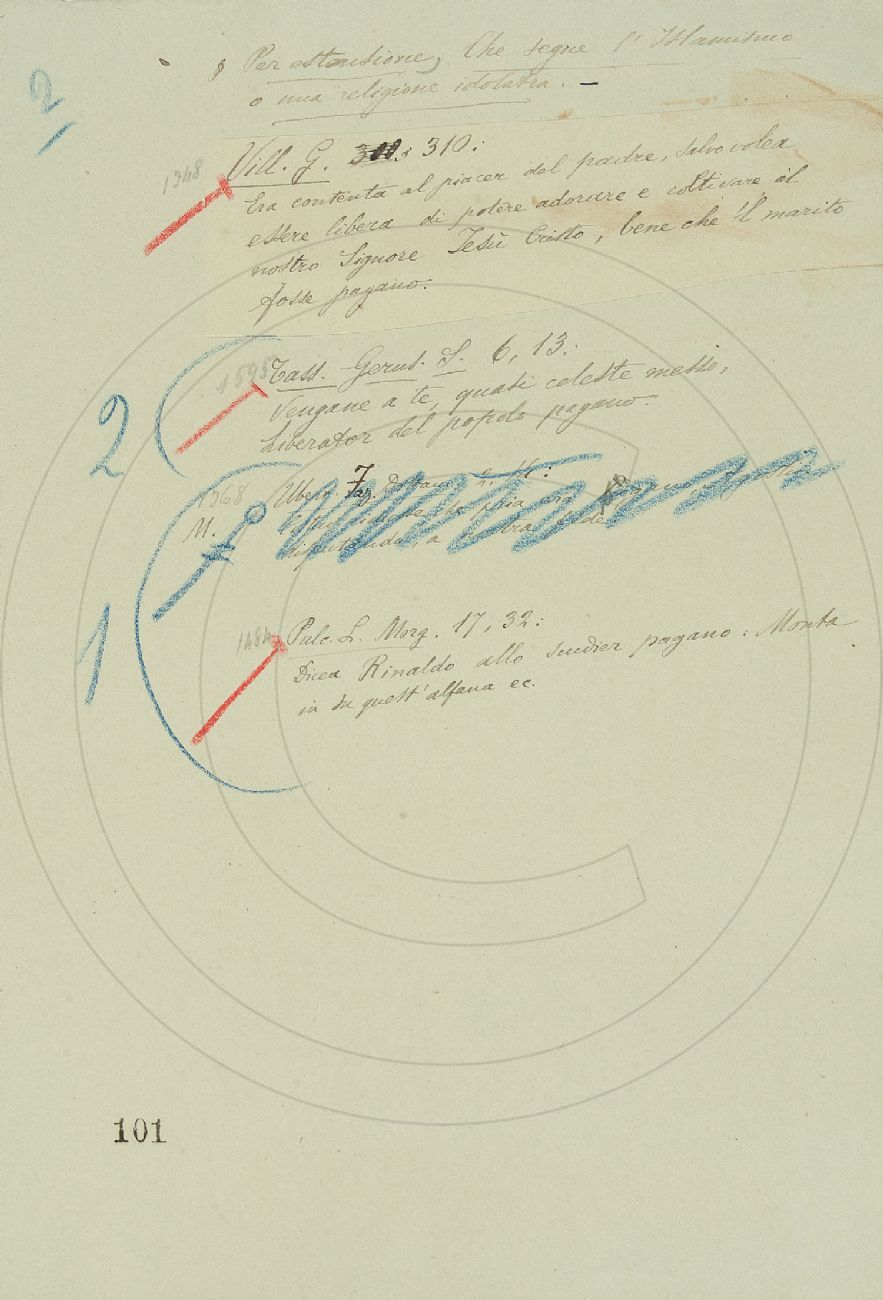 2
§ Per estensione, Che segue l'Islamismo
o una religione idolatra. —
1348
Vill. G. 310:
Era contenta al piacer del padre, salvo volea
essere libera di potere adorare e coltivare il
nostro Signore Iesù Cristo, bene che 'l marito
fosse pagano.
1595
Tass. Gerus. L. 6, 13:
Vengane a te, quasi celeste messo,
Liberator del popolo pagano.
2
1368
M.
Uber. Faz.
1
1484
Pulc. L. Morg. 17, 32:
Dicea Rinaldo allo scudier pagano: Monta
in su quest'alfana ec.
101